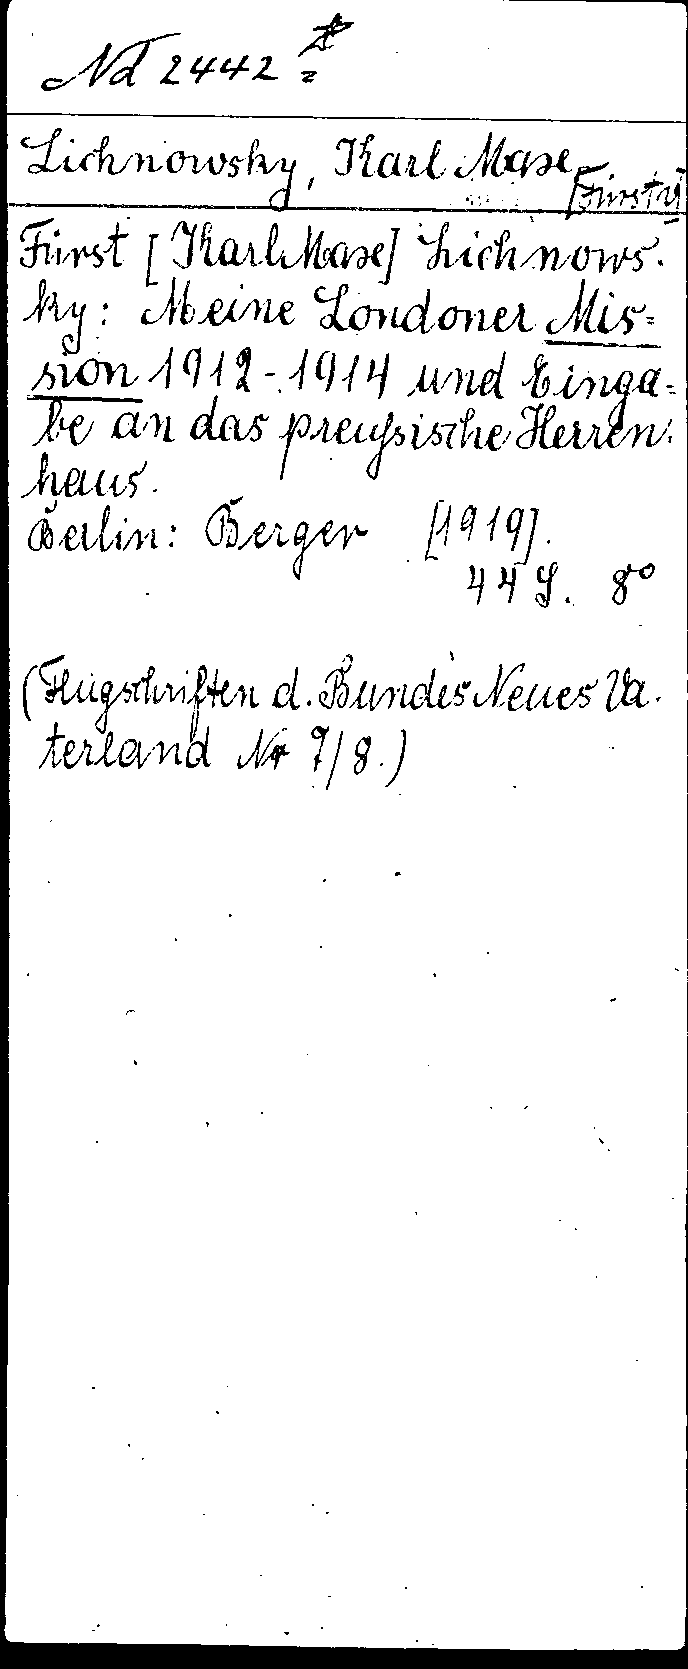 Nd 2442
Lichnowsky, Karl Max
[Fürst v]
Fürst [Karl Max] Lichnows-
ky: Meine Londoner Mis-
sion 1912-1914 und Einga-
be an das preußische Herren-
haus.
Berlin: Berger [1919].
44 S. 8°
(Flugschriften d. Bundes Neues Va-
terland Nr 7/8.)